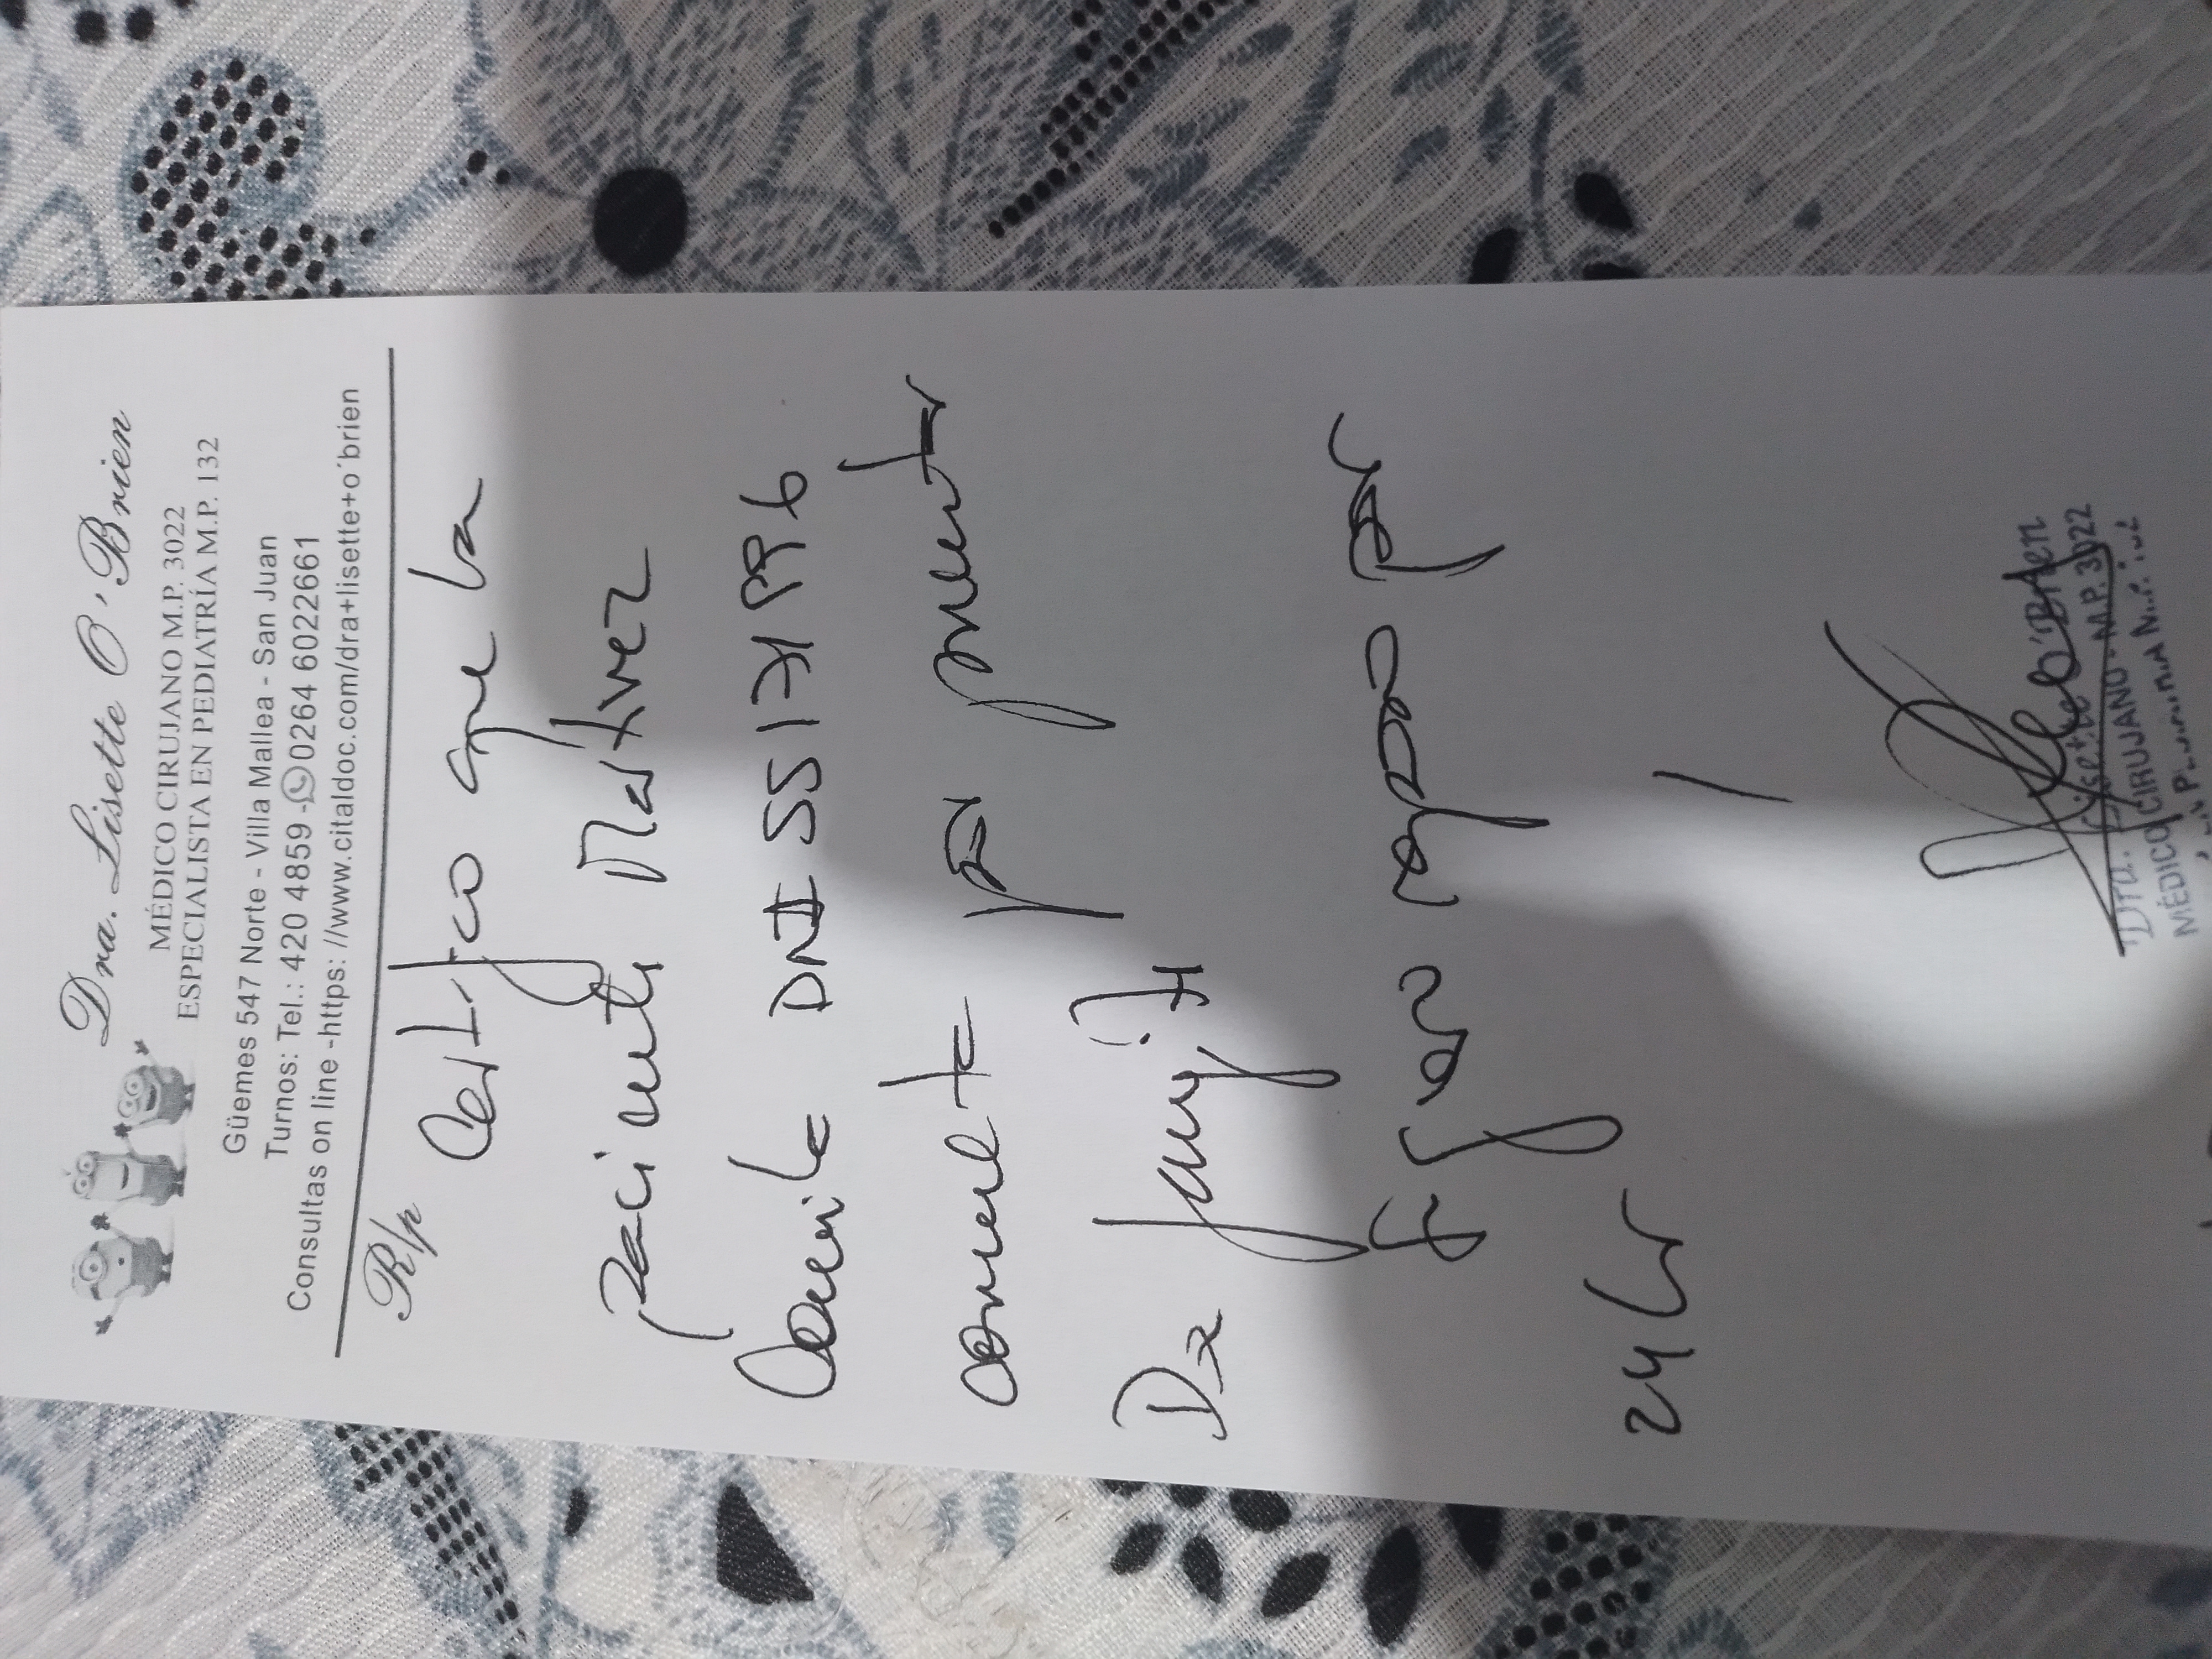 Dra. Lisette O'Brien
MÉDICO CIRUJANO M.P. 3022
ESPECIALISTA EN PEDIATRÍA M.P. 132
Güemes 547 Norte - Villa Mallea - San Juan
Turnos: Tel.: 420 4859 - 0264 6022661
Consultas on line -https: //www.citaldoc.com/dra+lisette+o´brien
R/p
Certifico que la
paciente Martinez
Camila DNI
consulta p presentar
Dx faringitis
reposo por
24 hs
Dra. Lisette O'Brien
MÉDICO CIRUJANO - M.P. 3022